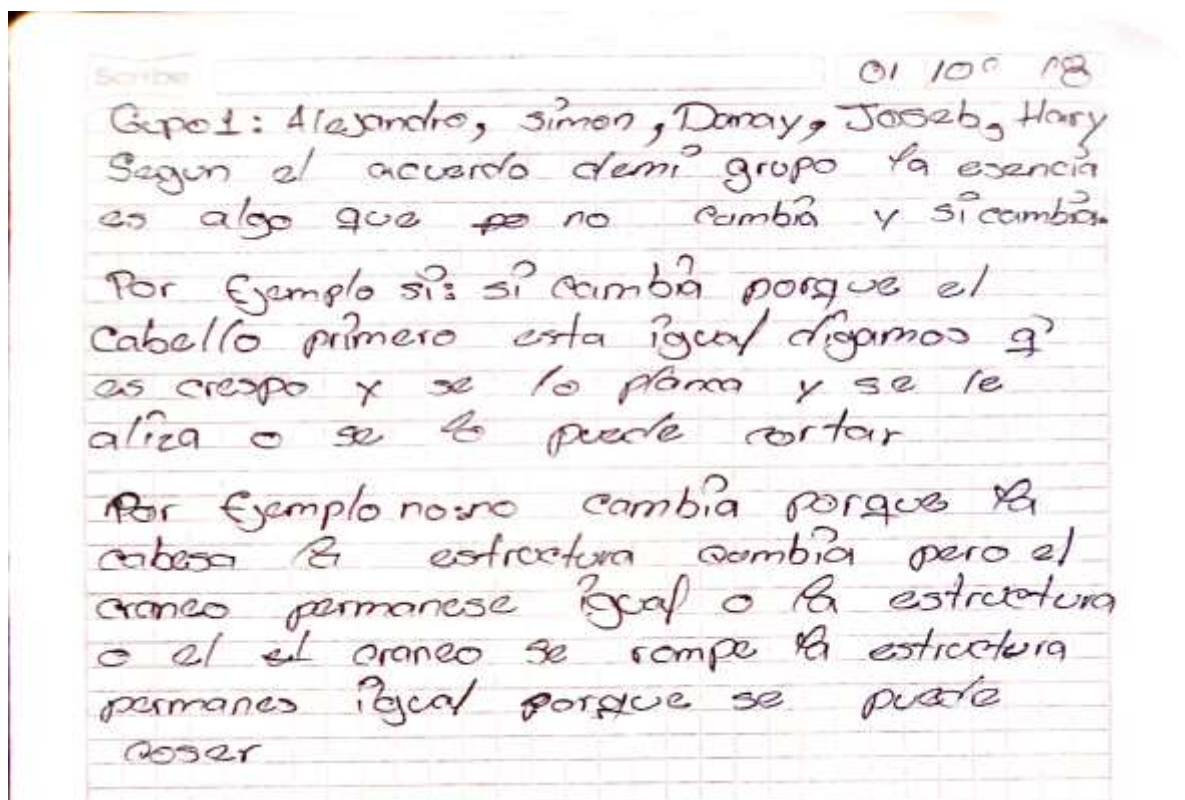 Scribe
01 10 18
Gupo1: Alejandro, simon, Danay, Joseb, Hary
Segun el acuerdo demi grupo la esencia
es algo que no cambia y si cambia.
Por Ejemplo si: si cambia porque el
cabello primero esta igual digamos q
es crespo y se lo planca y se le
aliza o se lo puede cortar
Por Ejemplo no: no cambia porque la
cabesa la estructura cambia pero el
craneo permanese igual o la estructura
o el craneo se rompe la estructura
permanes igual porque se puede
coser